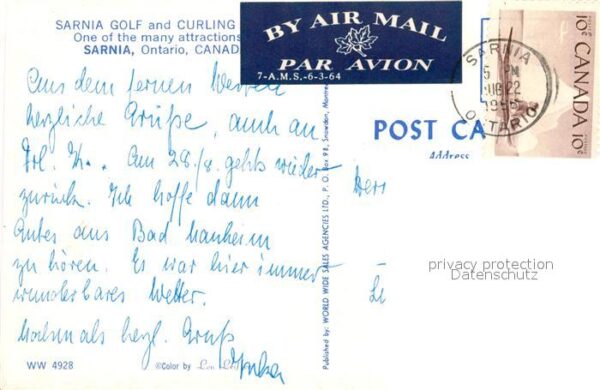 SARNIA GOLF and CURLING
One of the many attractions
SARNIA, Ontario, CANADA
BY AIR MAIL
PAR AVION
7-A.M.S.-6-3-64
SARNIA
5 PM
22
ONTARIO
POSTES POSTAGE
10¢ CANADA 10¢
POST CA
Address
Aus dem fernen Westen
herzliche Grüße, auch an
Frl. K.. Am 28./8. gehts wieder
zurück. Ich hoffe dann
Gutes aus Bad Nauheim
zu hören. Es war hier immer
wunderbares Wetter.
Nochmals herzl. Gruß
Herr
privacy protection
Datenschutz
Published by: WORLD WIDE SALES AGENCIES LTD., P. O. Box 98, Snowdon, Montre
WW 4928
©Color by